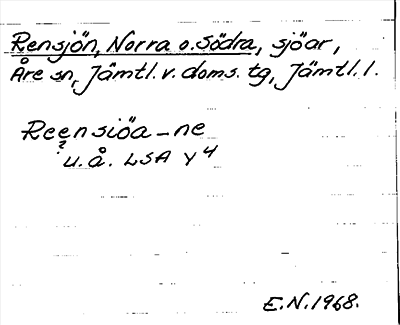 Rensjön, Norra o. Södra, sjöar,
Åre sn, Jämtl. v. doms. tg, Jämtl. l.
Reensiöa - ne
?
u. å. LSA Y 4
E.N. 1968.